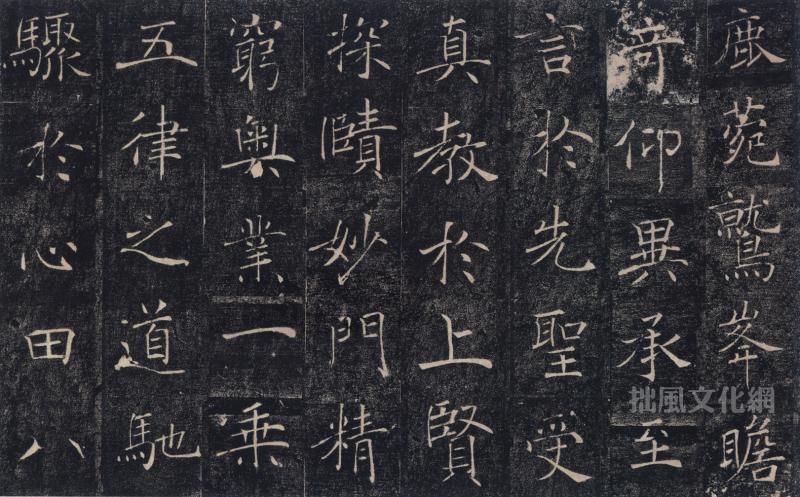 鹿菀鷲峯瞻
竒仰異承至
言於先聖受
真教於上賢
探賾妙門精
窮奥業一乗
五律之道馳
驟於心田八
拙風文化網